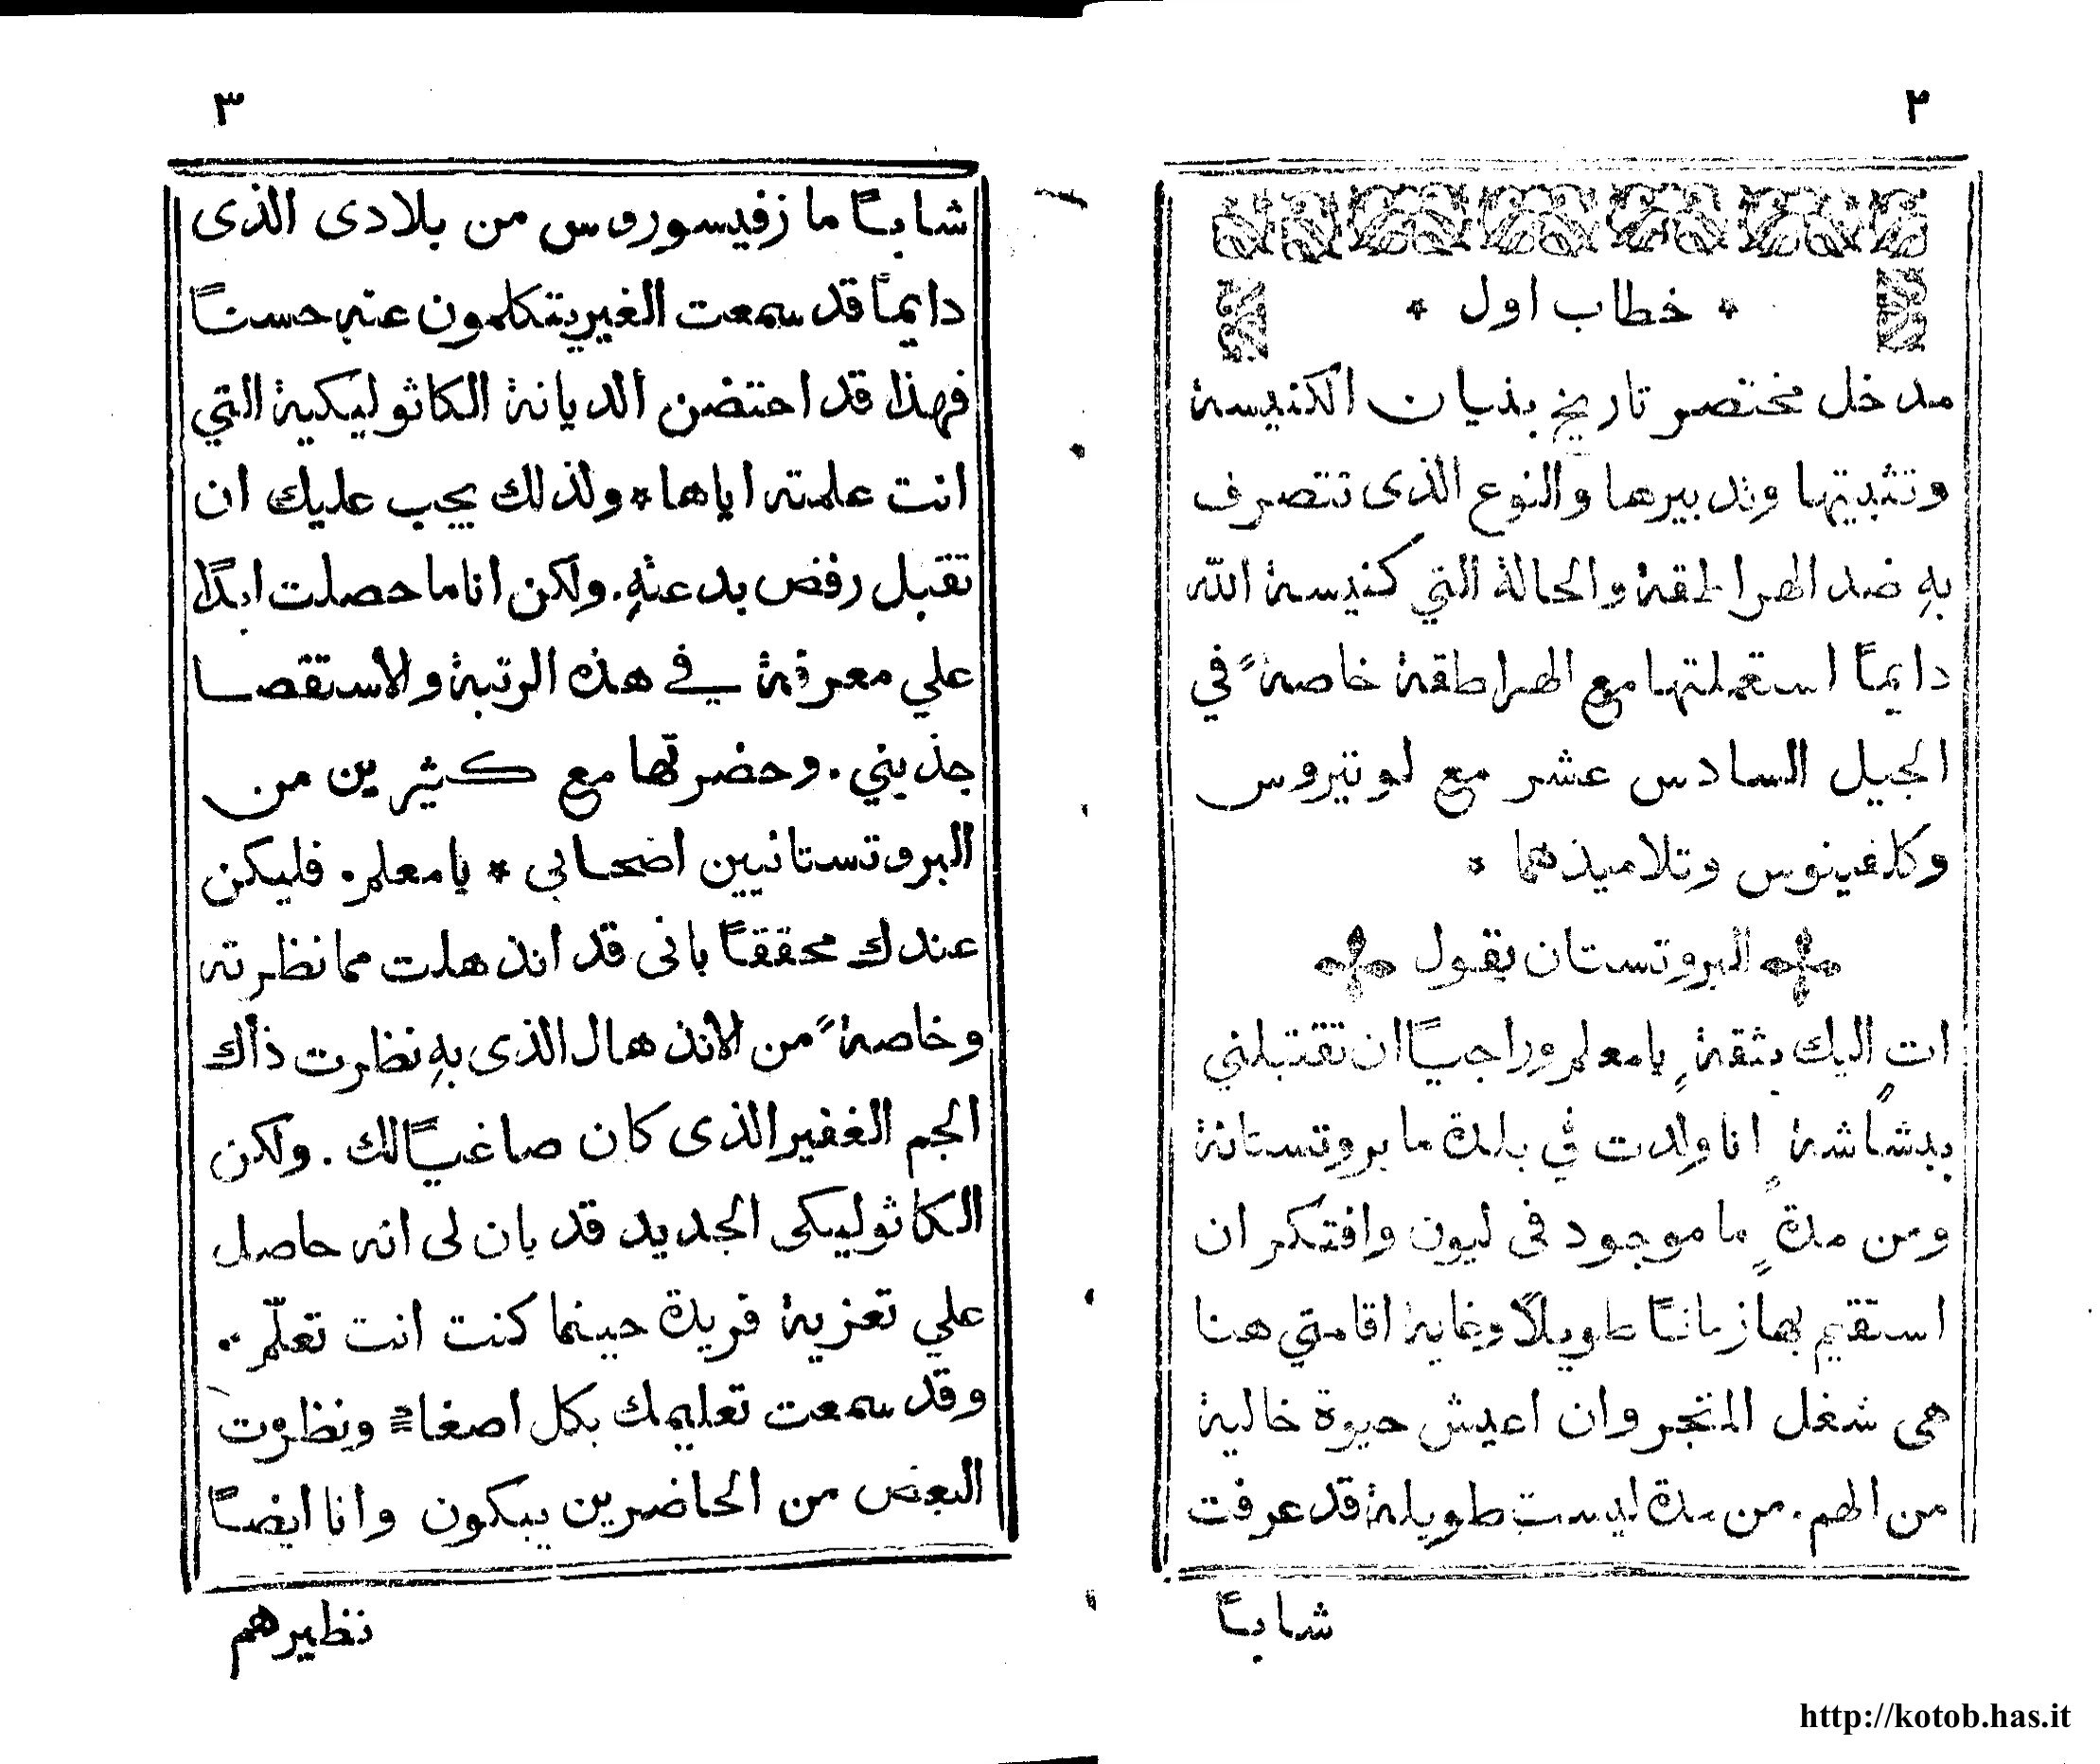 ٢
* خطاب اول *
مدخل مختصر تاريخ بنيان الكنيسة
وتثبيتها وتدبيرها والنوع الذى تتصرف
بهِ ضد الهراطقة والحالة التي كنيسة الله
دايماً استعملتها مع الهراطقة خاصةً في
الجيل السادس عشر مع لوتيروس
وكلفينوس وتلاميذهما *
البروتستان يقول
اتٍ اليك بثقةٍ يامعلم وراجياً ان تقتبلني
ببشاشةٍ انا ولدت في بلدة ما بروتستانة
ومن مدةٍ ما موجود في ليون وافتكر ان
استقيم بها زماناً طويلاً وغاية اقامتي هنا
هى شغل المتجر وان اعيش حيوة خالية
من الهم . من مدة ليست طويلة قد عرفت
شاباً
٣
شاباً ما زفيسوروس من بلادى الذى
دايماً قد سمعت الغير يتكلمون عنه حسناً
فهذا قد احتضن الديانة الكاثوليكية التي
انت علمته اياها * ولذلك يجب عليك ان
تقبل رفض بدعتهِ . ولكن انا ما حصلت ابداً
علي معرفة في هذه الرتبة والاستقصا
جذبني . وحضرتها مع كثيرين من
البروتستانيين اضحابي * يامعلم . فليكن
عندك محققاً بانى قد انذهلت مما نظرته
وخاصةً من الانذهال الذى بهِ نظرت ذاك
الجم الغفير الذى كان صاغياً لك . ولكن
الكاثوليكى الجديد قد بان لى انه حاصل
علي تعزية فريدة حينما كنت انت تعلّم .
وقد سمعت تعليمك بكل اصغاء ونظرت
البعض من الحاضرين يبكون وانا ايضاً
نظيرهم
http://kotob.has.it